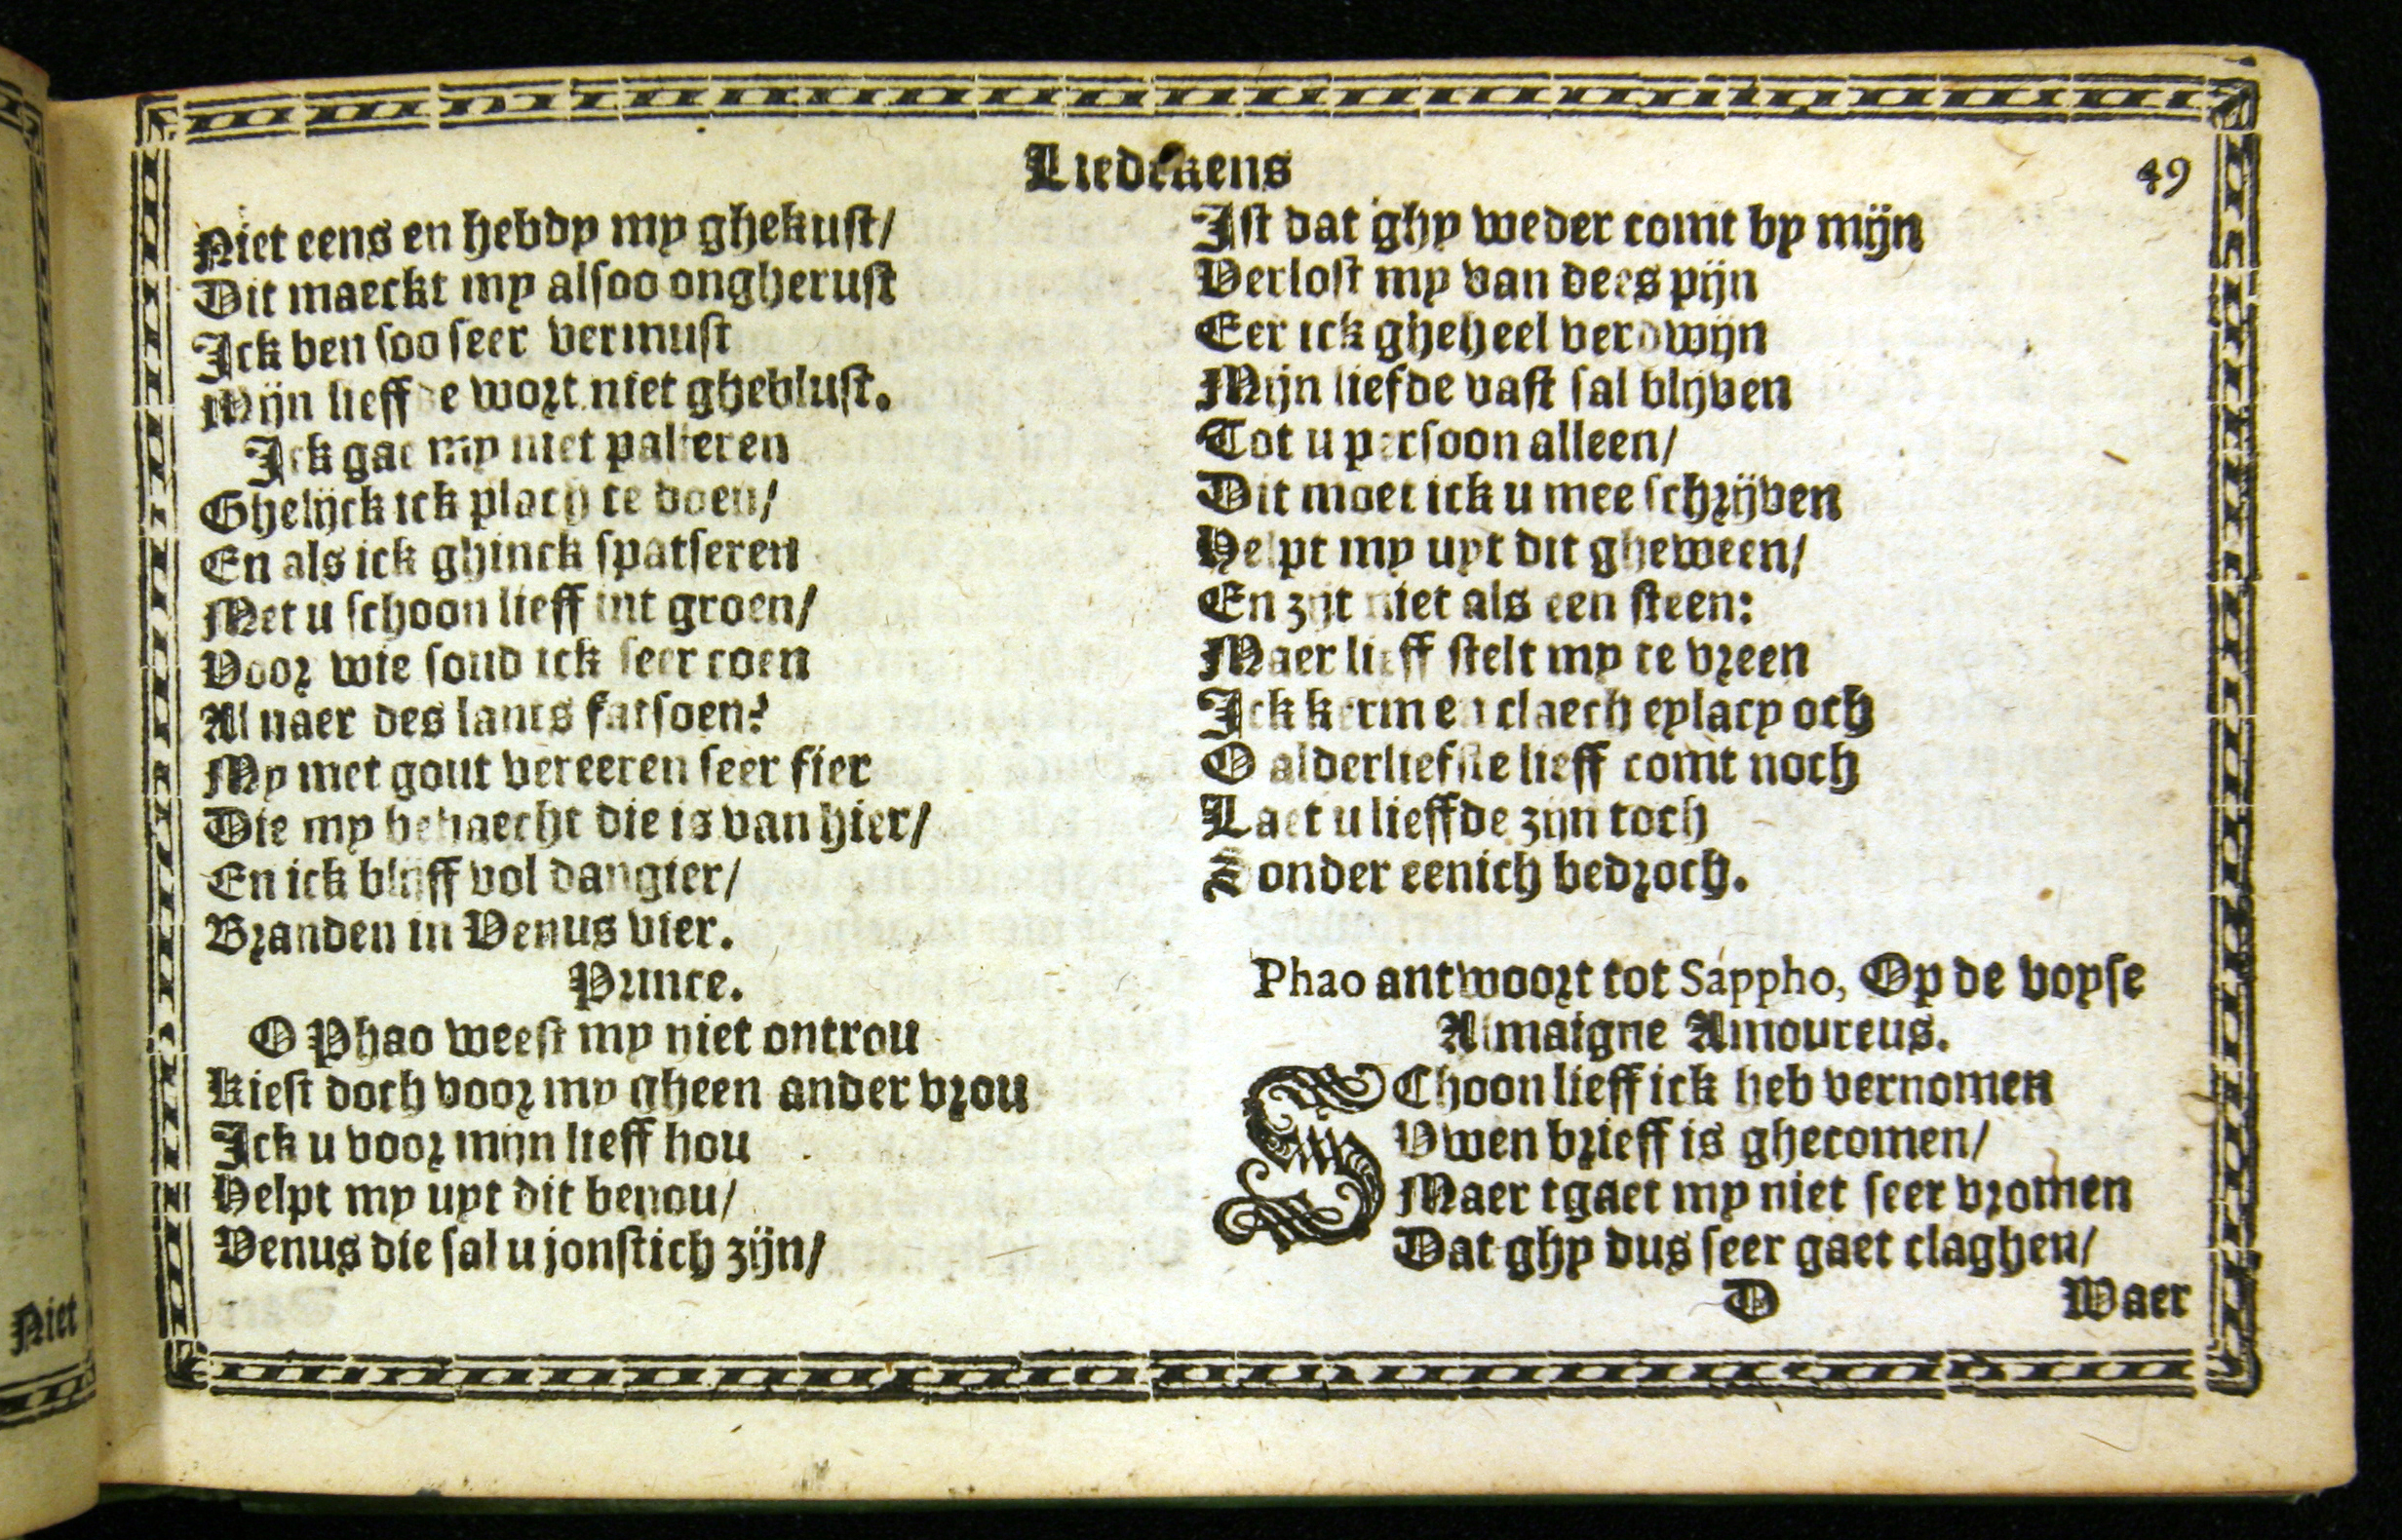 Liedekens
49
Niet eens en hebdy my ghekust/
Dit maeckt my alsoo ongherust
Ick ben soo seer vermust
Mijn lieffde wort niet gheblust.
Ick gae my niet palleren
Ghelijck ick plach te doen/
En als ick ghinck spatseren
Met u schoon lieff int groen/
Voor wie soud ick seer coen
Al naer des lants fatsoen?
My met gout vereeren seer fier
Die my behaecht die is van hier/
En ick blijff vol dangier/
Branden in Venus vier.
Prince.
O Phao weest my niet ontrou
Kiest doch voor my gheen ander vrou
Ick u voor mijn lieff hou
Helpt my uyt dit benou/
Venus die sal u jonstich zijn/
Ist dat ghy weder comt by mijn
Verlost my van dees pijn
Eer ick gheheel verdwijn
Mijn liefde vast sal blijven
Tot u persoon alleen/
Dit moet ick u mee schrijven
Helpt my uyt dit gheween/
En zijt niet als een steen:
Maer lieff stelt my te vreen
Ick kerm en claech eylacy och
O alderliefste lieff comt noch
Laet u lieffde zijn toch
Sonder eenich bedroch.
Phao antwoort tot Sappho, Op de voyse
Almaigne Amoureus.
SChoon lieff ick heb vernomen
Vwen brieff is ghecomen/
Maer tgaet my niet seer vromen
Dat ghy dus seer gaet claghen/
D
Waer
Niet